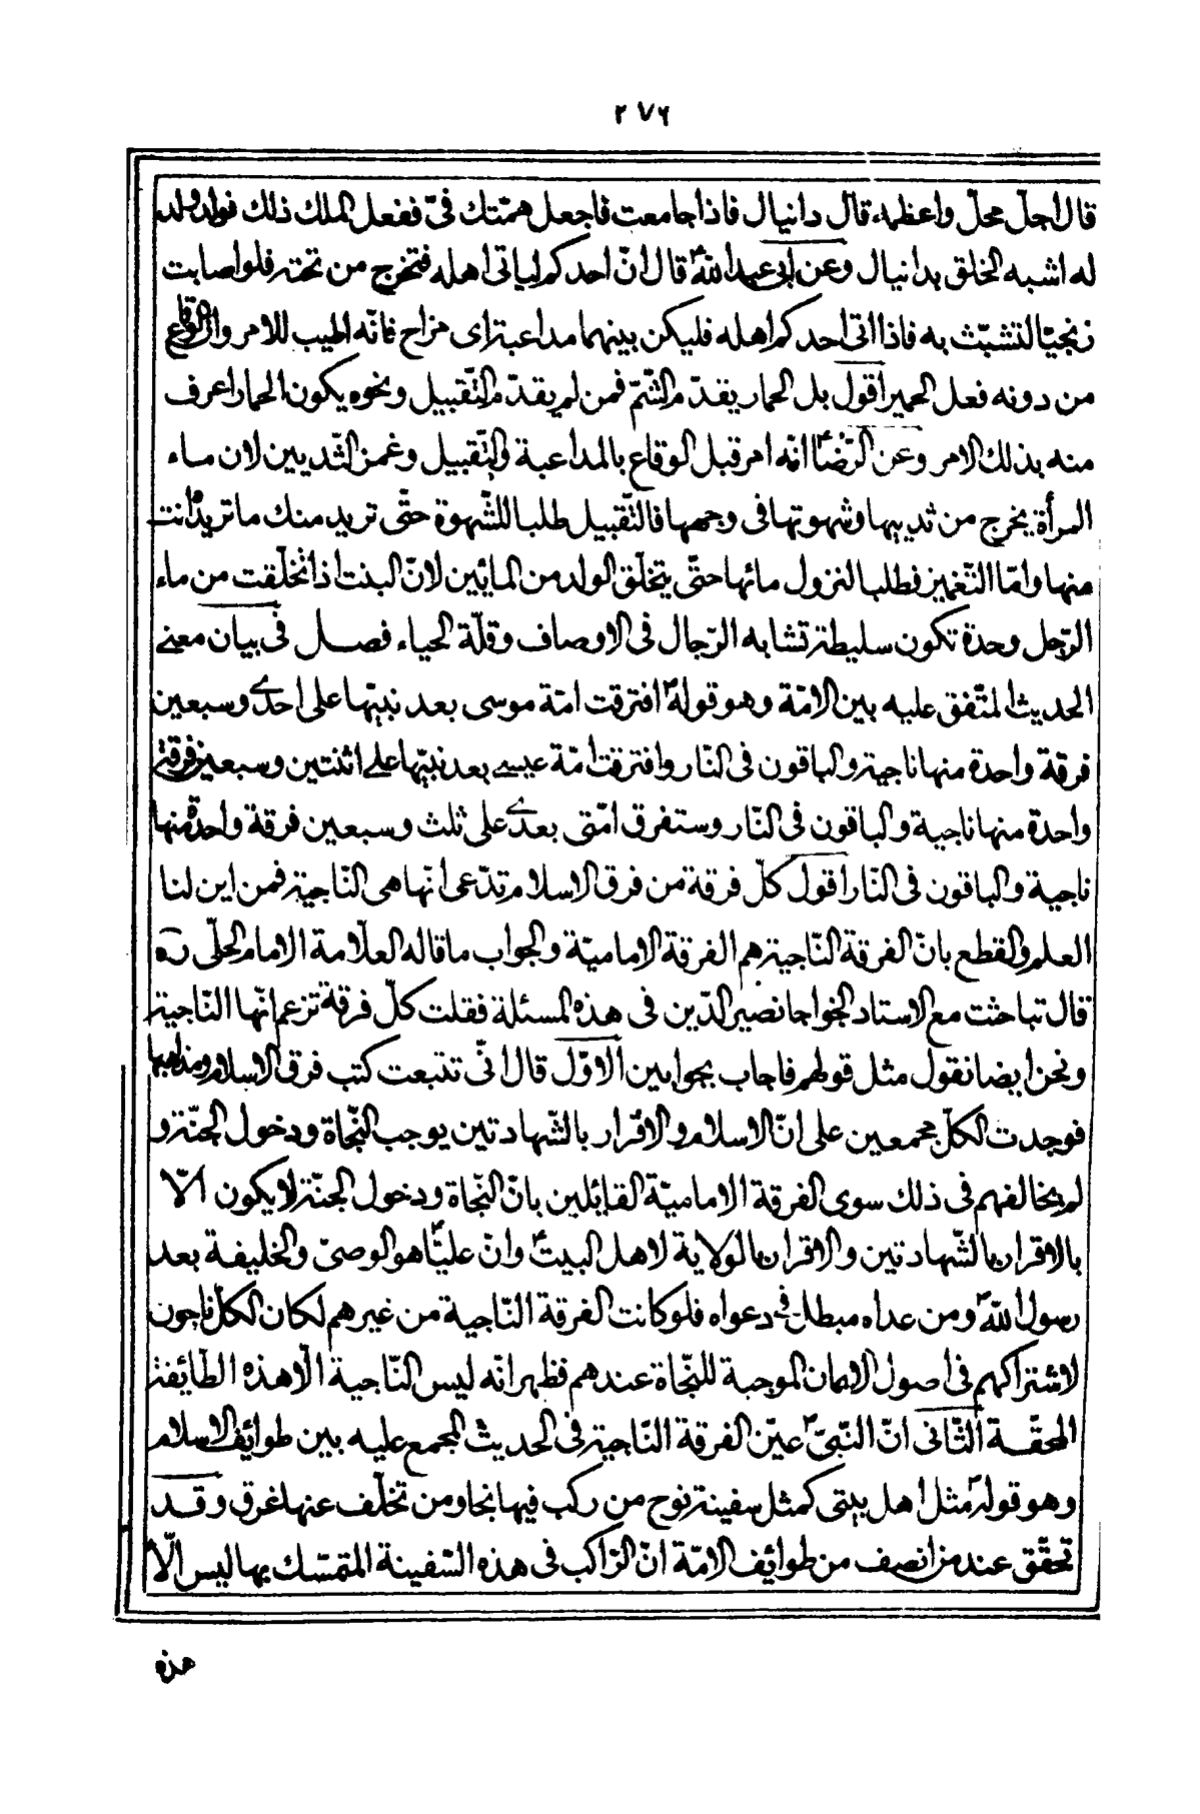 ٢٧٦
قال اجلّ محلّ واعظمه قال دانيال فاذا جامعت فاجعل همّتك فىّ ففعل الملك ذلك فولد ولد
له اشبه الخلق بدانيال وعن ابى عبد اللهؑ قال انّ احدكم لياتى اهله فتخرج من تحته فلو اصابت
زنجيّا لتشبّثت به فاذا اتى احدكم اهله فليكن بينهما مداعبة اى مزاح فانّه اطيب للامر وان الوقاع
من دونه فعل الحمير اقول بل الحمار يقدّم الشّمّ فمن لم يقدّم التّقبيل ونحوه يكون الحمار اعرف
منه بذلك الامر وعن الرّضاؑ انّه امر قبل الوقاع بالمداعبة والتّقبيل وغمز الثّديين لان ماء
المرأة يخرج من ثدييها وشهوتها فى وجهها فالتّقبيل طلبا للشّهوة حتّى تريد منك ما تريد انت
منها وامّا التّغميز فطلب النزول مائها حتّى يتخلّق الولد من المائين لانّ البنت اذا تخلّقت من ماء
الرّجل وحدة تكون سليطة تشابه الرّجال فى الاوصاف وقلّة الحياء فصل فى بيان معنى
الحديث المتّفق عليه بين الامّة وهو قولهؐ افترقت امّة موسى بعد نبيّها على احدى وسبعين
فرقة واحدة منها ناجية والباقون فى النّار وافترقت امّة عيسى بعد نبيّها على اثنتين وسبعين فرقة
واحدة منها ناجية والباقون فى النّار وستفرق امّتى بعدى على ثلث وسبعين فرقة واحدة منها
ناجية والباقون فى النّار اقول كلّ فرقة من فرق الاسلام تدّعى انّها هى النّاجية فمن اين لنا
العلم والقطع بانّ الفرقة النّاجية هم الفرقة الاماميّة والجواب ما قاله العلّامة الامام الحلّى ره
قال تباحثت مع الاستاد الخواجا نصير الدّين فى هذه المسئلة فقلت كلّ فرقة تزعم انّها النّاجية
ونحن ايضا نقول مثل قولهم فاجاب بجوابين الاوّل قال انّى تتبعت كتب فرق الاسلام ومذاهبها
فوجدت الكلّ مجمعين على انّ الاسلام والاقرار بالشّهادتين يوجب النّجاة ودخول الجنّة و
لم يخالفهم فى ذلك سوى الفرقة الاماميّة القائلين بانّ النّجاة ودخول الجنّة لا يكون الّا
بالاقرار بالشّهادتين والاقرار بالولاية لاهل البيتؑ وانّ عليّاؑ هو الوصىّ والخليفة بعد
رسول اللهؐ ومن عداه مبطل فى دعواه فلو كانت الفرقة النّاجية من غيرهم لكان الكلّ ناجون
لاشتراكهم فى اصول الايمان الموجبة للنّجاة عندهم فظهر انّه ليس النّاجية الّا هذه الطّائفة
المحقّة الثّانى انّ النّبىّؐ عيّن الفرقة النّاجية فى الحديث المجمع عليه بين طوايف الاسلام
وهو قولهؐ مثل اهل بيتى كمثل سفينة نوح من ركب فيها نجا ومن تخلّف عنها غرق وقد
تحقّق عند من انصف من طوايف الامّة انّ الرّاكب فى هذه السّفينة المتمسّك بها ليس الّا
هذه